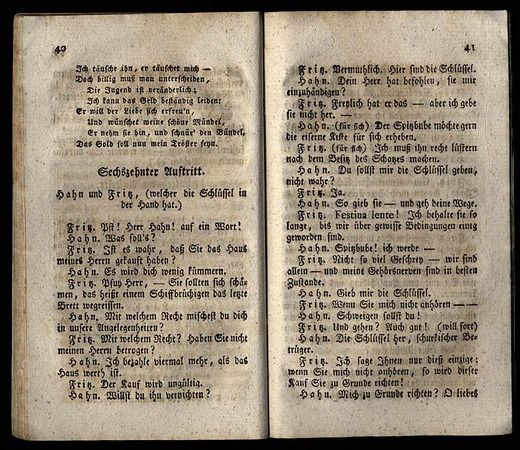 40
Ich täusche ihn, er täuschet mich —
Doch billig muß man unterscheiden,
Die Jugend ist veränderlich;
Ich kann das Geld beständig leiden:
Er will der Liebe sich erfreu'n,
Und wünschet meine schöne Mündel,
Er nehm sie hin, und schnür' den Bündel,
Das Gold soll nun mein Tröster seyn.
Sechszehnter Auftritt.
Hahn und Fritz, (welcher die Schlüssel in
der Hand hat.)
Fritz. Pst! Herr Hahn! auf ein Wort!
Hahn. Was soll's?
Fritz. Ist es wahr, daß Sie das Haus
meines Herrn gekauft haben?
Hahn. Es wird dich wenig kümmern.
Fritz. Pfuy Herr, — Sie sollten sich schä=
men, das heißt einem Schiffbrüchigen das letzte
Brett wegreissen.
Hahn. Mit welchem Recht mischest du dich
in unsere Angelegenheiten?
Fritz. Mit welchem Recht? Haben Sie nicht
meinen Herrn betrogen?
Hahn. Ich bezahle viermal mehr, als das
Haus werth ist.
Fritz. Der Kauf wird ungültig.
Hahn. Willst du ihn vernichten?
41
Fritz. Vermuthlich. Hier sind die Schlüssel.
Hahn. Dein Herr hat befohlen, sie mir
einzuhändigen?
Fritz. Freylich hat er das — aber ich gebe
sie nicht her. —
Hahn. (für sich) Der Spitzbube möchte gern
die eiserne Kiste für sich erheben.
Fritz. (für sich) Ich muß ihn recht lüstern
nach dem Besitz des Schatzes machen.
Hahn. Du sollst mir die Schlüssel geben,
nicht wahr?
Fritz. Ja.
Hahn. So gieb sie — und geh deine Wege.
Fritz. Festina lente! Ich behalte sie so
lange, bis wir über gewisse Bedingungen einig
geworden sind.
Hahn. Spitzbube! ich werde —
Fritz. Nicht so viel Geschrey — wir sind
allein — und meine Gehörsnerven sind in besten
Zustande.
Hahn. Gieb mir die Schlüssel.
Fritz. Wenn Sie mich nicht anhören — —
Hahn. Schweigen sollst du!
Fritz. Und gehen? Auch gut! (will fort)
Hahn. Die Schlüssel her, schurkischer Be=
trüger.
Fritz. Ich sage Ihnen nur dieß einzige:
wenn Sie mich nicht anhören, so wird dieser
Kauf Sie zu Grunde richten!
Hahn. Mich zu Grunde richten? O liebes